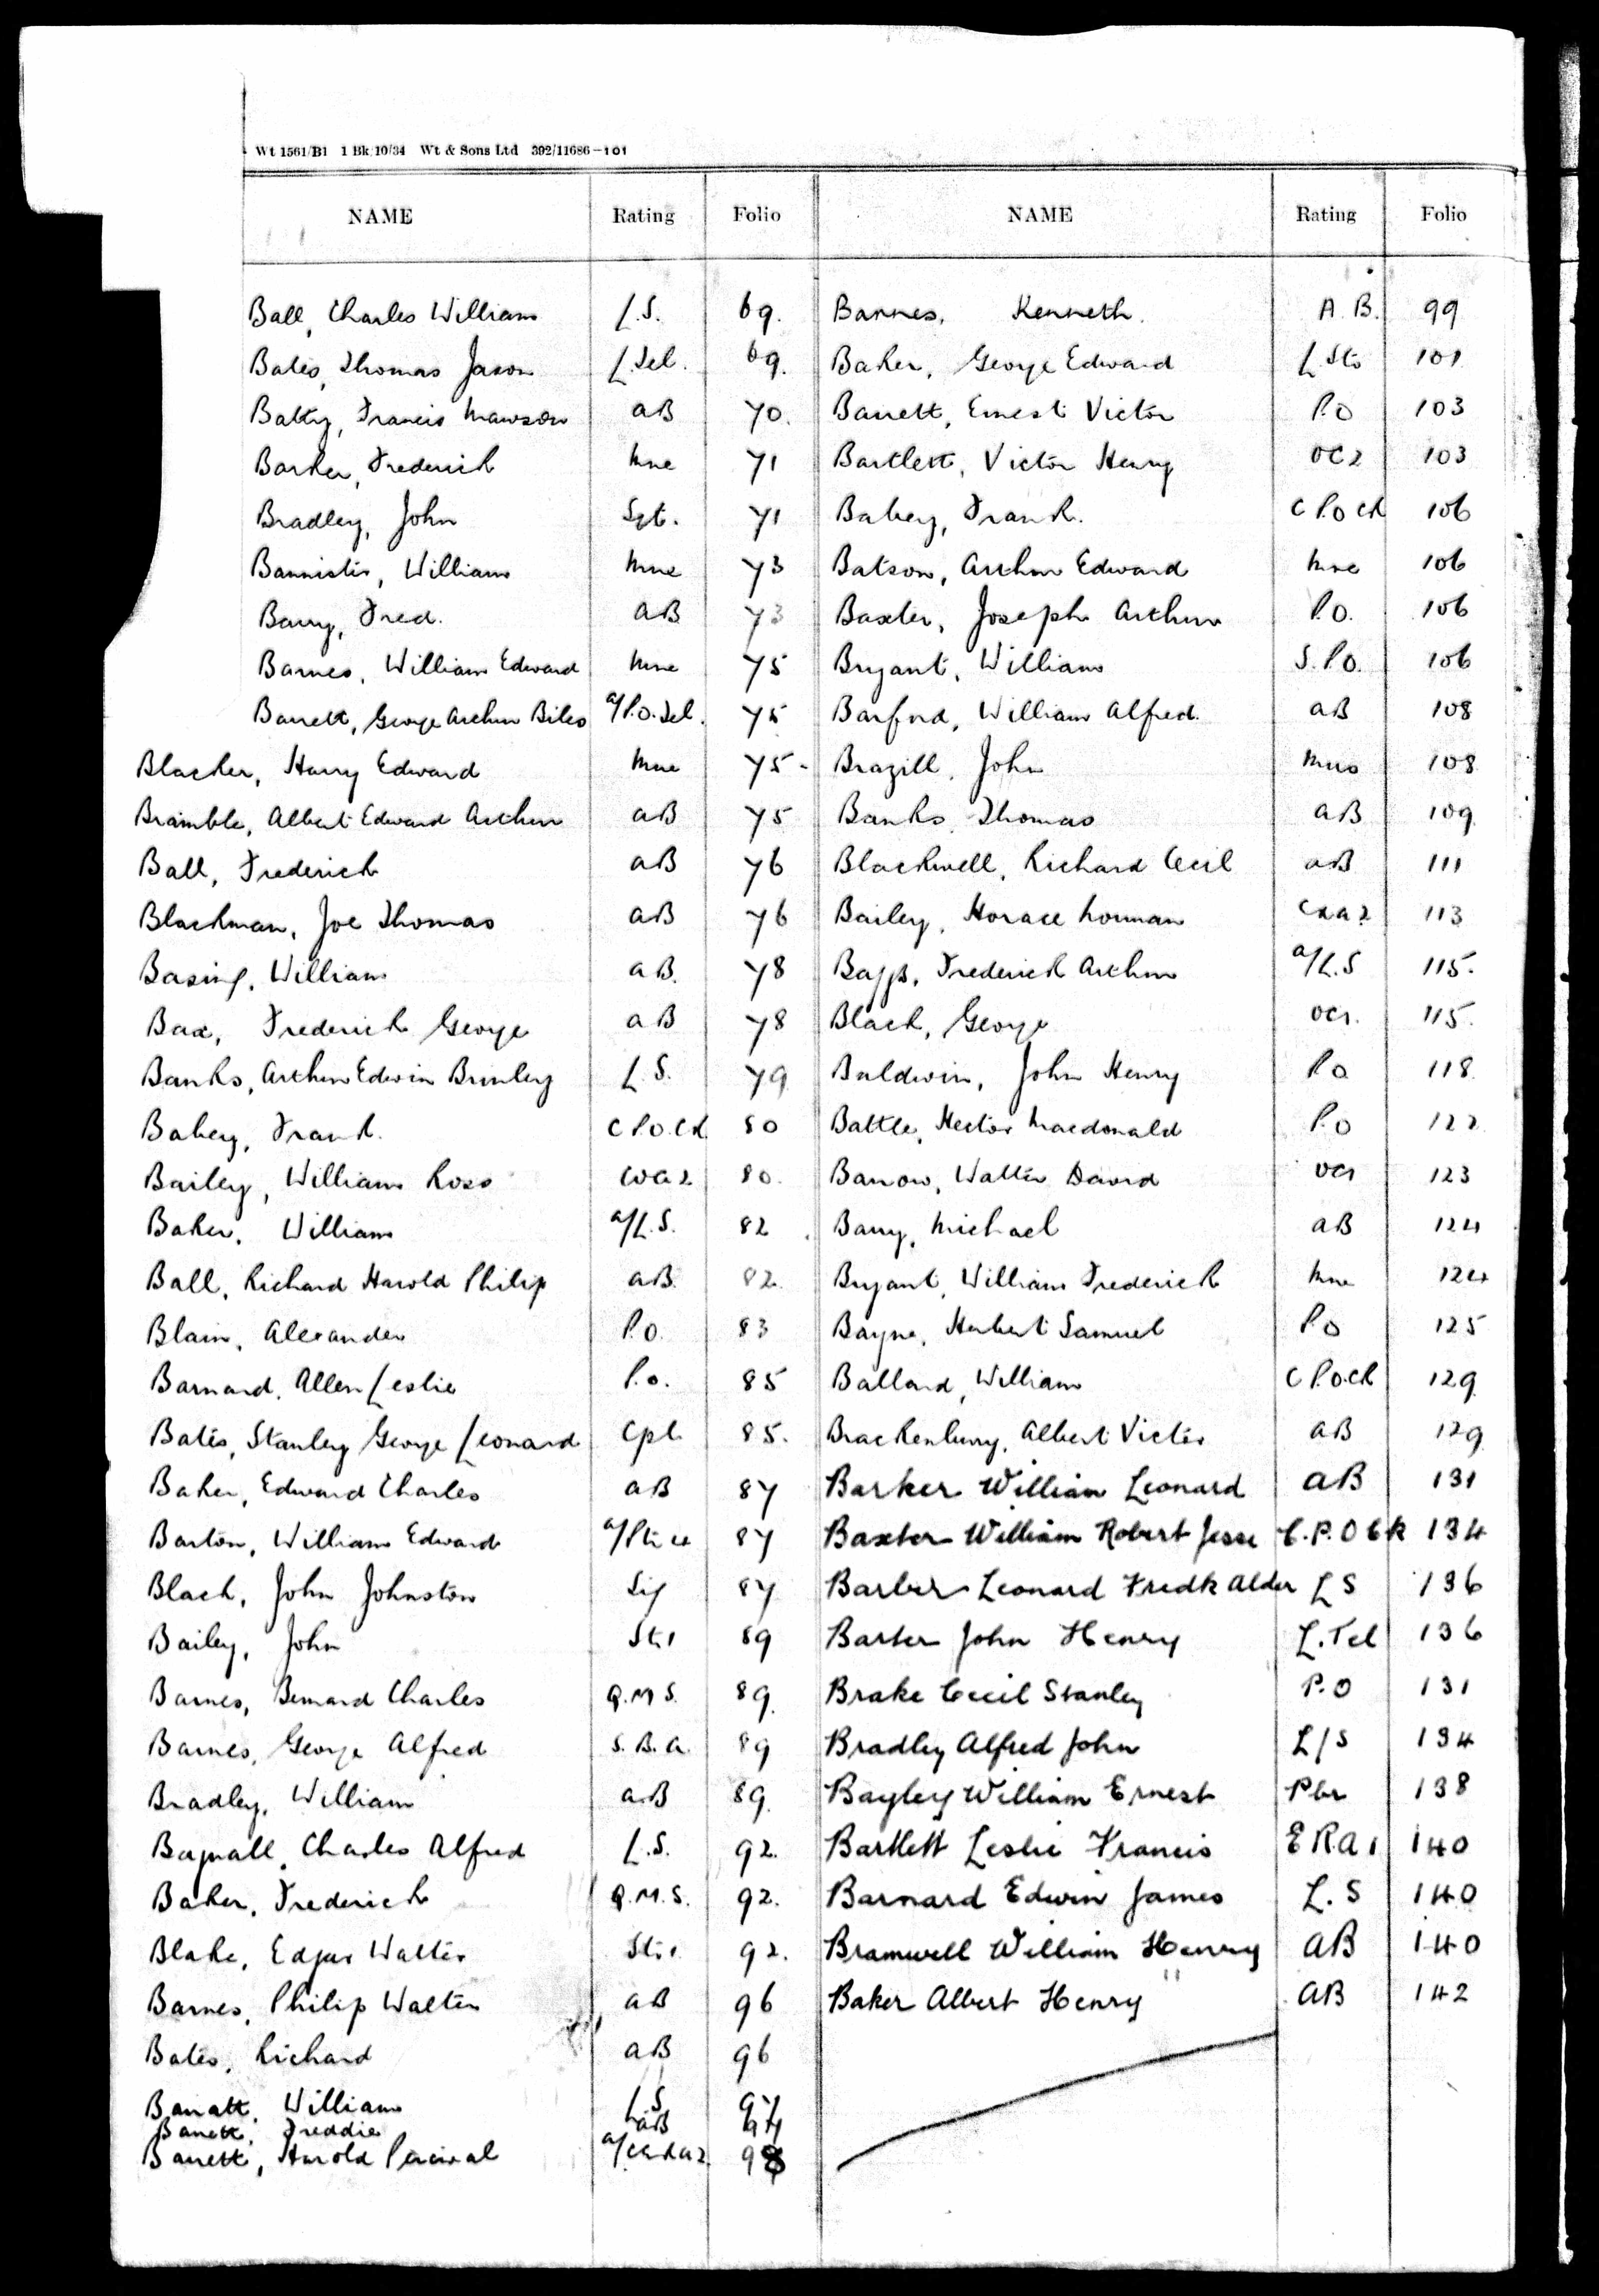 Wt 1561/B1 1 Bk 10/34 Wt & Sons Ltd 392/11686-101
NAME Rating Folio NAME Rating Folio
Ball, Charles William L.S. 69. Barnes, Kenneth. A.B. 99
Bates, Thomas Jason L.Tel. 69. Baker, George Edward L.Sto 101
Batty, Francis Mawson AB 70. Barrett, Ernest Victor P.O 103
Barker, Frederick Mne 71 Bartlett, Victor Henry OC2 103
Bradley, John Sgt. 71 Babey, Frank. C P.O Ck 106
Bannister, William Mne 73 Batson, Arthur Edward Mne 106
Barry, Fred. AB 73 Baxter, Joseph Arthur P.O. 106
Barnes, William Edward Mne 75 Bryant, William S.P.O. 106
Barrett, George Arthur Biles A/P.O.Tel. 75 Barford, William Alfred. AB 108
Blacker, Harry Edward Mne 75 Brazill, John Mus 108
Bramble, Albert Edward Arthur AB 75 Banks, Thomas AB 109
Ball, Frederick AB 76 Blackwell, Richard Cecil AB 111
Blackman, Joe Thomas AB 76 Bailey, Horace Norman 113
Basing, William AB. 78 Bapp, Frederick Arthur A/L.S 115.
Bax, Frederick George AB 78 Black, George OC1. 115.
Banks, Arthur Edwin Brinley L.S. 79 Baldwin, John Henry P.O 118
Babey, Frank. C P.O.Ck 80 Battle, Hector Macdonald P.O 122
Bailey, William Ross 80. Barrow, Walter David OC1 123
Baker, William A/L.S. 82 Barry, Michael AB 124
Ball, Richard Harold Philip AB. 82. Bryant, William Frederick Mne 124
Blain, Alexander P.O. 83 Bayne, Herbert Samuel P.O 125
Barnard, Allen Leslie P.O. 85 Ballard, William C P.O.Ck 129
Bates, Stanley George Leonard Cpl 85. Brackenbury, Albert Victor AB 129
Baker, Edward Charles AB 87 Barker William Leonard AB 131
Barton, William Edward 87 Baxter William Robert Jesse C.P.O Ck 134
Black, John Johnston Sig 87 Barber Leonard Fredk Alder LS 136
Bailey, John St.1 89 Barter John Henry L.Tel 136
Barnes, Bernard Charles Q.M.S. 89. Brake Cecil Stanley P.O 131
Barnes, George Alfred S.B.A. 89 Bradley Alfred John L/S 134
Bradley, William AB 89. Bayley William Ernest Pbr 138
Bagnall, Charles Alfred L.S. 92. Bartlett Leslie Francis E R.A 1 140
Baker, Frederick Q.M.S. 92. Barnard Edwin James L.S 140
Blake, Edgar Walter St.1. 92. Bramwell William Henry AB 140
Barnes, Philip Walter AB 96 Baker Albert Henry AB 142
Bates, Richard AB 96
Barratt, William L.S. 97
Barrett, Freddie AB 97
Barrett, Harold Percival 98